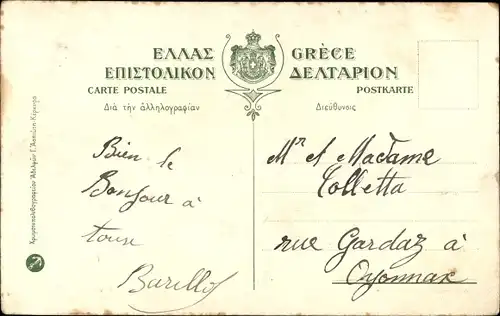 ΕΛΛΑΣ GRÈCE
ΕΠΙΣΤΟΛΙΚΟΝ ΔΕΛΤΑΡΙΟΝ
CARTE POSTALE POSTKARTE
Διὰ τὴν ἀλληλογραφίαν Διεύθυνσις
Bien le
Bonjour à
tous
Barillos
Mr et Madame
Colletta
rue Gardaz à
Oyonnax
Χρωμοτυπολιθογραφεῖον Ἀδελφῶν Γ. Ἀσπιώτη-Κέρκυρα